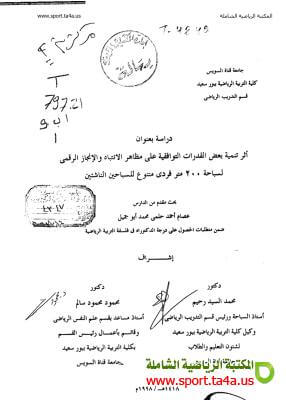 المكتبة الرياضية الشاملة
www.sport.ta4a.us
T
797.21
جامعة قناة السويس
كلية التربية الرياضية ببور سعيد
قسم التدريب الرياضى
دراسة بعنوان
أثر تنمية بعض القدرات التوافقية على مظاهر الانتباه والإنجاز الرقمى
لسباحة ٢٠٠ متر فردى متنوع للسباحين الناشئين
بحث مقدم من الدارس
عصام أحمد حلمى محمد أبو جميل
ضمن متطلبات الحصول على درجة الدكتوراه فى فلسفة التربية الرياضية
إشراف
دكتور
محمد السيد رحيم
أستاذ السباحة ورئيس قسم التدريب الرياضى
وكيل كلية التربية الرياضية ببور سعيد
لشئون التعليم والطلاب
دكتور
محمود محمود سالم
أستاذ مساعد بقسم علم النفس الرياضى
وقائم بأعمال رئيس القسم
بكلية التربية الرياضية ببور سعيد
جامعة قناة السويس
المكتبة الرياضية الشاملة
www.sport.ta4a.us
١٤١٨هـ / ١٩٩٨م